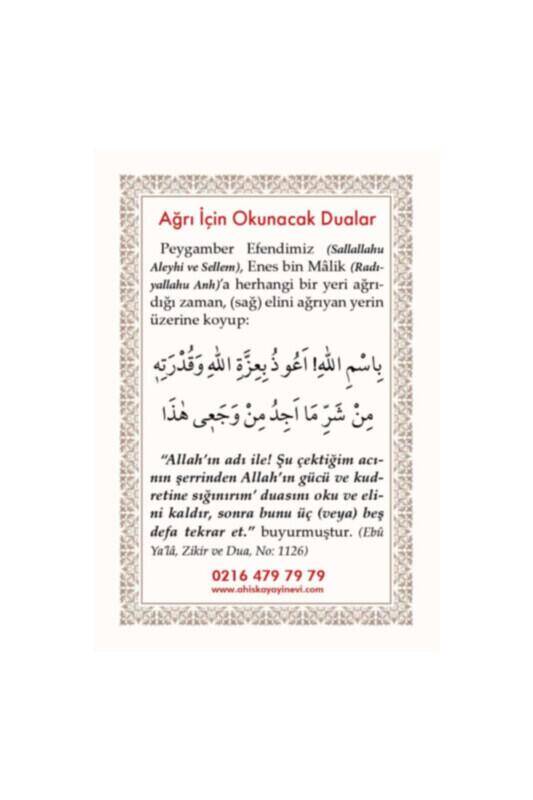 Ağrı İçin Okunacak Dualar
Peygamber Efendimiz (Sallallahu
Aleyhi ve Sellem), Enes bin Mâlik (Radı-
yallahu Anh)’a herhangi bir yeri ağrı-
dığı zaman, (sağ) elini ağrıyan yerin
üzerine koyup:
بِاسْمِ اللهِ! اَعُوذُ بِعِزَّةِ اللهِ وَقُدْرَتِهِ
مِنْ شَرِّ مَا اَجِدُ مِنْ وَجَعِى هٰذَا
“Allah’ın adı ile! Şu çektiğim acı-
nın şerrinden Allah’ın gücü ve kud-
retine sığınırım’ duasını oku ve eli-
ni kaldır, sonra bunu üç (veya) beş
defa tekrar et.” buyurmuştur. (Ebû
Ya’lâ, Zikir ve Dua, No: 1126)
0216 479 79 79
www.ahiskayayinevi.com